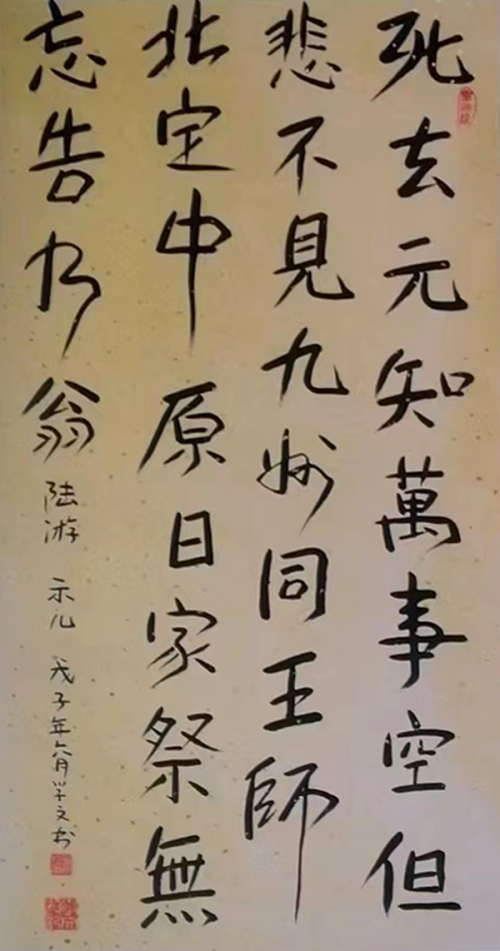 死去元知萬事空但
悲不見九州同王師
北定中原日家祭無
忘告乃翁
陆游 示儿 戊子年 学文书